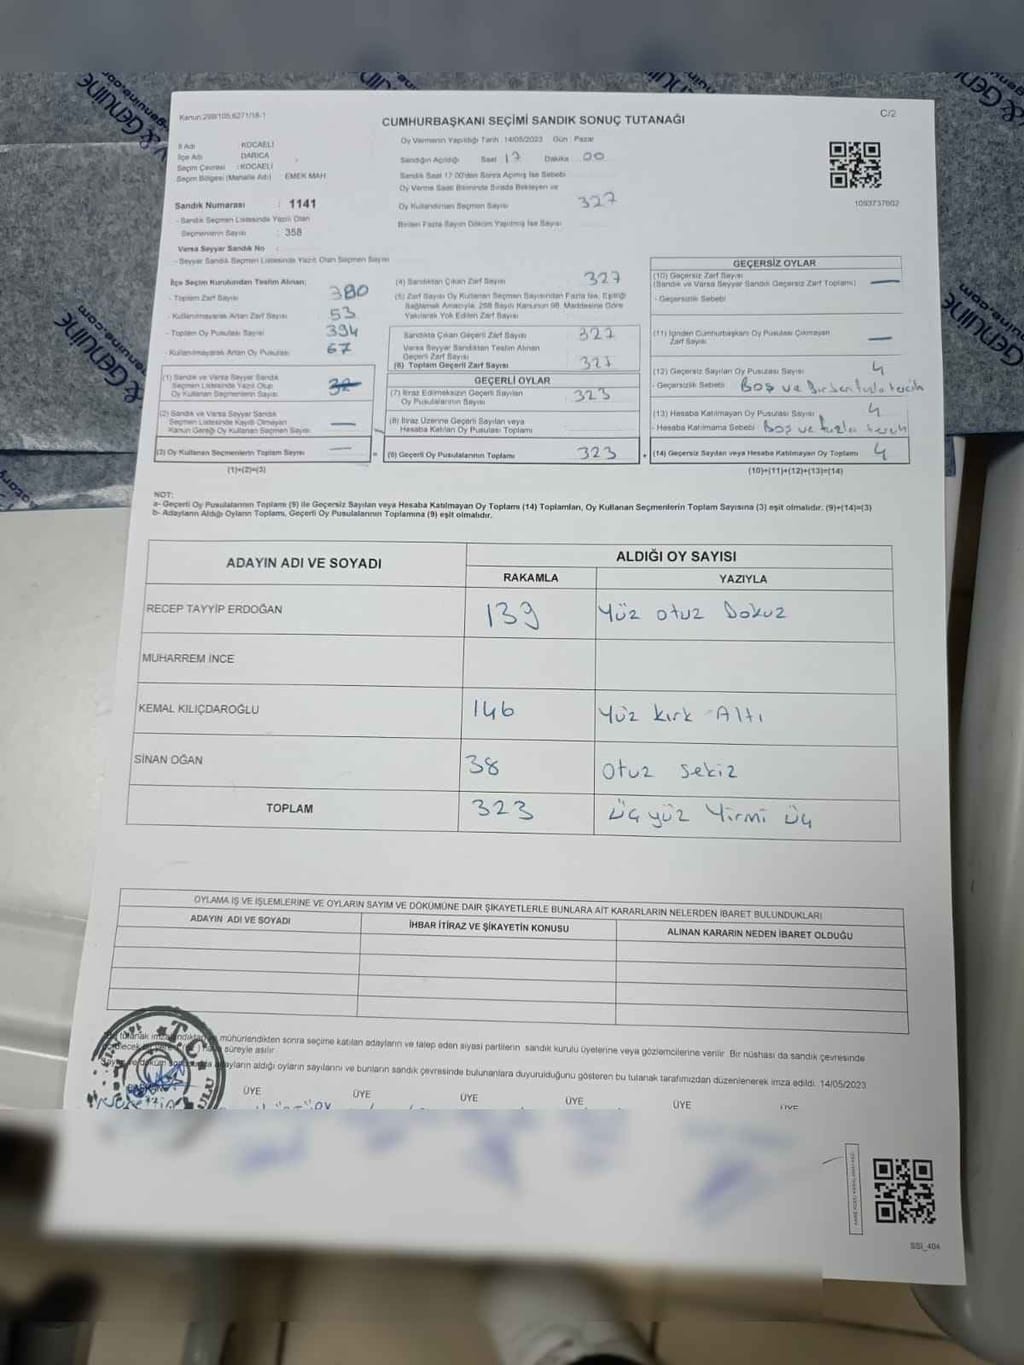 Kanun:298/105,6271/18-1
CUMHURBAŞKANI SEÇİMİ SANDIK SONUÇ TUTANAĞI
C/2
İl Adı KOCAELİ
İlçe Adı DARICA
Seçim Çevresi : KOCAELİ
Seçim Bölgesi (Mahalle Adı) EMEK MAH
Sandık Numarası : 1141
- Sandık Seçmen Listesinde Yazılı Olan
Seçmenlerin Sayısı : 358
Varsa Seyyar Sandık No
- Seyyar Sandık Seçmen Listesinde Yazılı Olan Seçmen Sayısı
Oy Vermenin Yapıldığı Tarih : 14/05/2023 Gün : Pazar
Sandığın Açıldığı Saat 17 Dakika 00
Sandık Saat 17:00'den Sonra Açılmış İse Sebebi
Oy Verme Saati Bitiminde Sırada Bekleyen ve
Oy Kullandırılan Seçmen Sayısı 327
Birden Fazla Sayım Döküm Yapılmış İse Sayısı
1093737602
İlçe Seçim Kurulundan Teslim Alınan;
- Toplam Zarf Sayısı 380
- Kullanılmayarak Artan Zarf Sayısı 53
- Toplam Oy Pusulası Sayısı 394
- Kullanılmayarak Artan Oy Pusulası 67
(1) Sandık ve Varsa Seyyar Sandık
Seçmen Listesinde Yazılı Olup
Oy Kullanan Seçmenlerin Sayısı
(2) Sandık ve Varsa Seyyar Sandık
Seçmen Listesinde Kayıtlı Olmayan
Kanun Gereği Oy Kullanan Seçmen Sayısı —
(3) Oy Kullanan Seçmenlerin Toplam Sayısı —
(1)+(2)=(3)
(4) Sandıktan Çıkan Zarf Sayısı 327
(5) Zarf Sayısı Oy Kullanan Seçmen Sayısından Fazla İse, Eşitliği
Sağlamak Amacıyla, 298 Sayılı Kanunun 98. Maddesine Göre
Yakılarak Yok Edilen Zarf Sayısı
Sandıkta Çıkan Geçerli Zarf Sayısı 327
Varsa Seyyar Sandıktan Teslim Alınan
Geçerli Zarf Sayısı
(6) Toplam Geçerli Zarf Sayısı 327
GEÇERLİ OYLAR
(7) İtiraz Edilmeksizin Geçerli Sayılan
Oy Pusulalarının Sayısı 323
(8) İtiraz Üzerine Geçerli Sayılan veya
Hesaba Katılan Oy Pusulası Toplamı
(9) Geçerli Oy Pusulalarının Toplamı 323
GEÇERSİZ OYLAR
(10) Geçersiz Zarf Sayısı
(Sandık ve Varsa Seyyar Sandık Geçersiz Zarf Toplamı) —
- Geçersizlik Sebebi
(11) İçinden Cumhurbaşkanı Oy Pusulası Çıkmayan
Zarf Sayısı —
(12) Geçersiz Sayılan Oy Pusulası Sayısı 4
- Geçersizlik Sebebi Boş ve Birden fazla tercih
(13) Hesaba Katılmayan Oy Pusulası Sayısı 4
- Hesaba Katılmama Sebebi Boş ve fazla tercih
(14) Geçersiz Sayılan veya Hesaba Katılmayan Oy Toplamı 4
(10)+(11)+(12)+(13)=(14)
NOT:
a- Geçerli Oy Pusulalarının Toplamı (9) ile Geçersiz Sayılan veya Hesaba Katılmayan Oy Toplamı (14) Toplamları, Oy Kullanan Seçmenlerin Toplam Sayısına (3) eşit olmalıdır. (9)+(14)=(3)
b- Adayların Aldığı Oyların Toplamı, Geçerli Oy Pusulalarının Toplamına (9) eşit olmalıdır.
ADAYIN ADI VE SOYADI
ALDIĞI OY SAYISI
RAKAMLA YAZIYLA
RECEP TAYYİP ERDOĞAN 139 Yüz otuz Dokuz
MUHARREM İNCE
KEMAL KILIÇDAROĞLU 146 Yüz kırk Altı
SİNAN OĞAN 38 Otuz sekiz
TOPLAM 323 Üç yüz Yirmi üç
OYLAMA İŞ VE İŞLEMLERİNE VE OYLARIN SAYIM VE DÖKÜMÜNE DAİR ŞİKAYETLERLE BUNLARA AİT KARARLARIN NELERDEN İBARET BULUNDUKLARI
ADAYIN ADI VE SOYADI
İHBAR İTİRAZ VE ŞİKAYETİN KONUSU
ALINAN KARARIN NEDEN İBARET OLDUĞU
mühürlendikten sonra seçime katılan adayların ve talep eden siyasi partilerin sandık kurulu üyelerine veya gözlemcilerine verilir. Bir nüshası da sandık çevresinde
süreyle asılır.
adayların aldığı oyların sayılarını ve bunların sandık çevresinde bulunanlara duyurulduğunu gösteren bu tutanak tarafımızdan düzenlenerek imza edildi. 14/05/2023
ÜYE ÜYE ÜYE ÜYE ÜYE ÜYE
SSİ_404